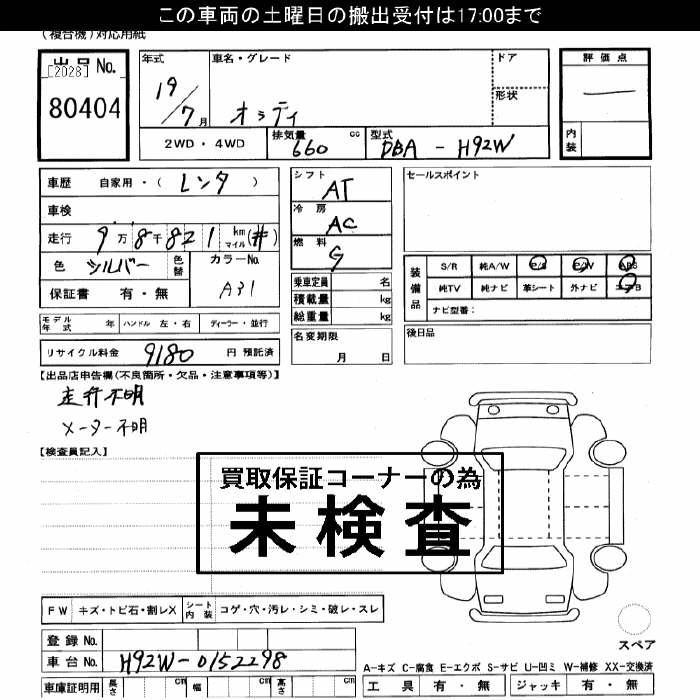 この車両の土曜日の搬出受付は17:00まで
(複合機)対応用紙
出品No.
[2028]
80404
年式
19/7月
車名・グレード
オッティ
ドア
形状
評価点
内装
2WD・4WD
排気量 660 cc
型式 DBA-H92W
車歴 自家用・(レンタ)
車検
走行 9万8千821 km マイル (#)
色 シルバー 色替 カラーNo. A31
保証書 有・無
シフト AT
冷房 AC
燃料 G
乗車定員 名
積載量 kg
総重量 kg
名変期限 月 日
セールスポイント
装備品
S/R 純A/W P/S P/W ABS
純TV 純ナビ 革シート 外ナビ エアB
ナビ型番:
後日品
モデル年式 年 ハンドル 左・右 ディーラー・並行
リサイクル料金 9180 円 預託済
【出品店申告欄(不良箇所・欠品・注意事項等)】
走行不明
メーター不明
【検査員記入】
買取保証コーナーの為
未検査
FW キズ・トビ石・割レX シート内装 コゲ・穴・汚レ・シミ・破レ・スレ
登録No.
車台No. H92W-0152298
車庫証明用 長さ cm 幅 cm 高さ cm
スペア
A-キズ C-腐食 E-エクボ S-サビ U-凹ミ W-補修 XX-交換済
工具 有・無 ジャッキ 有・無